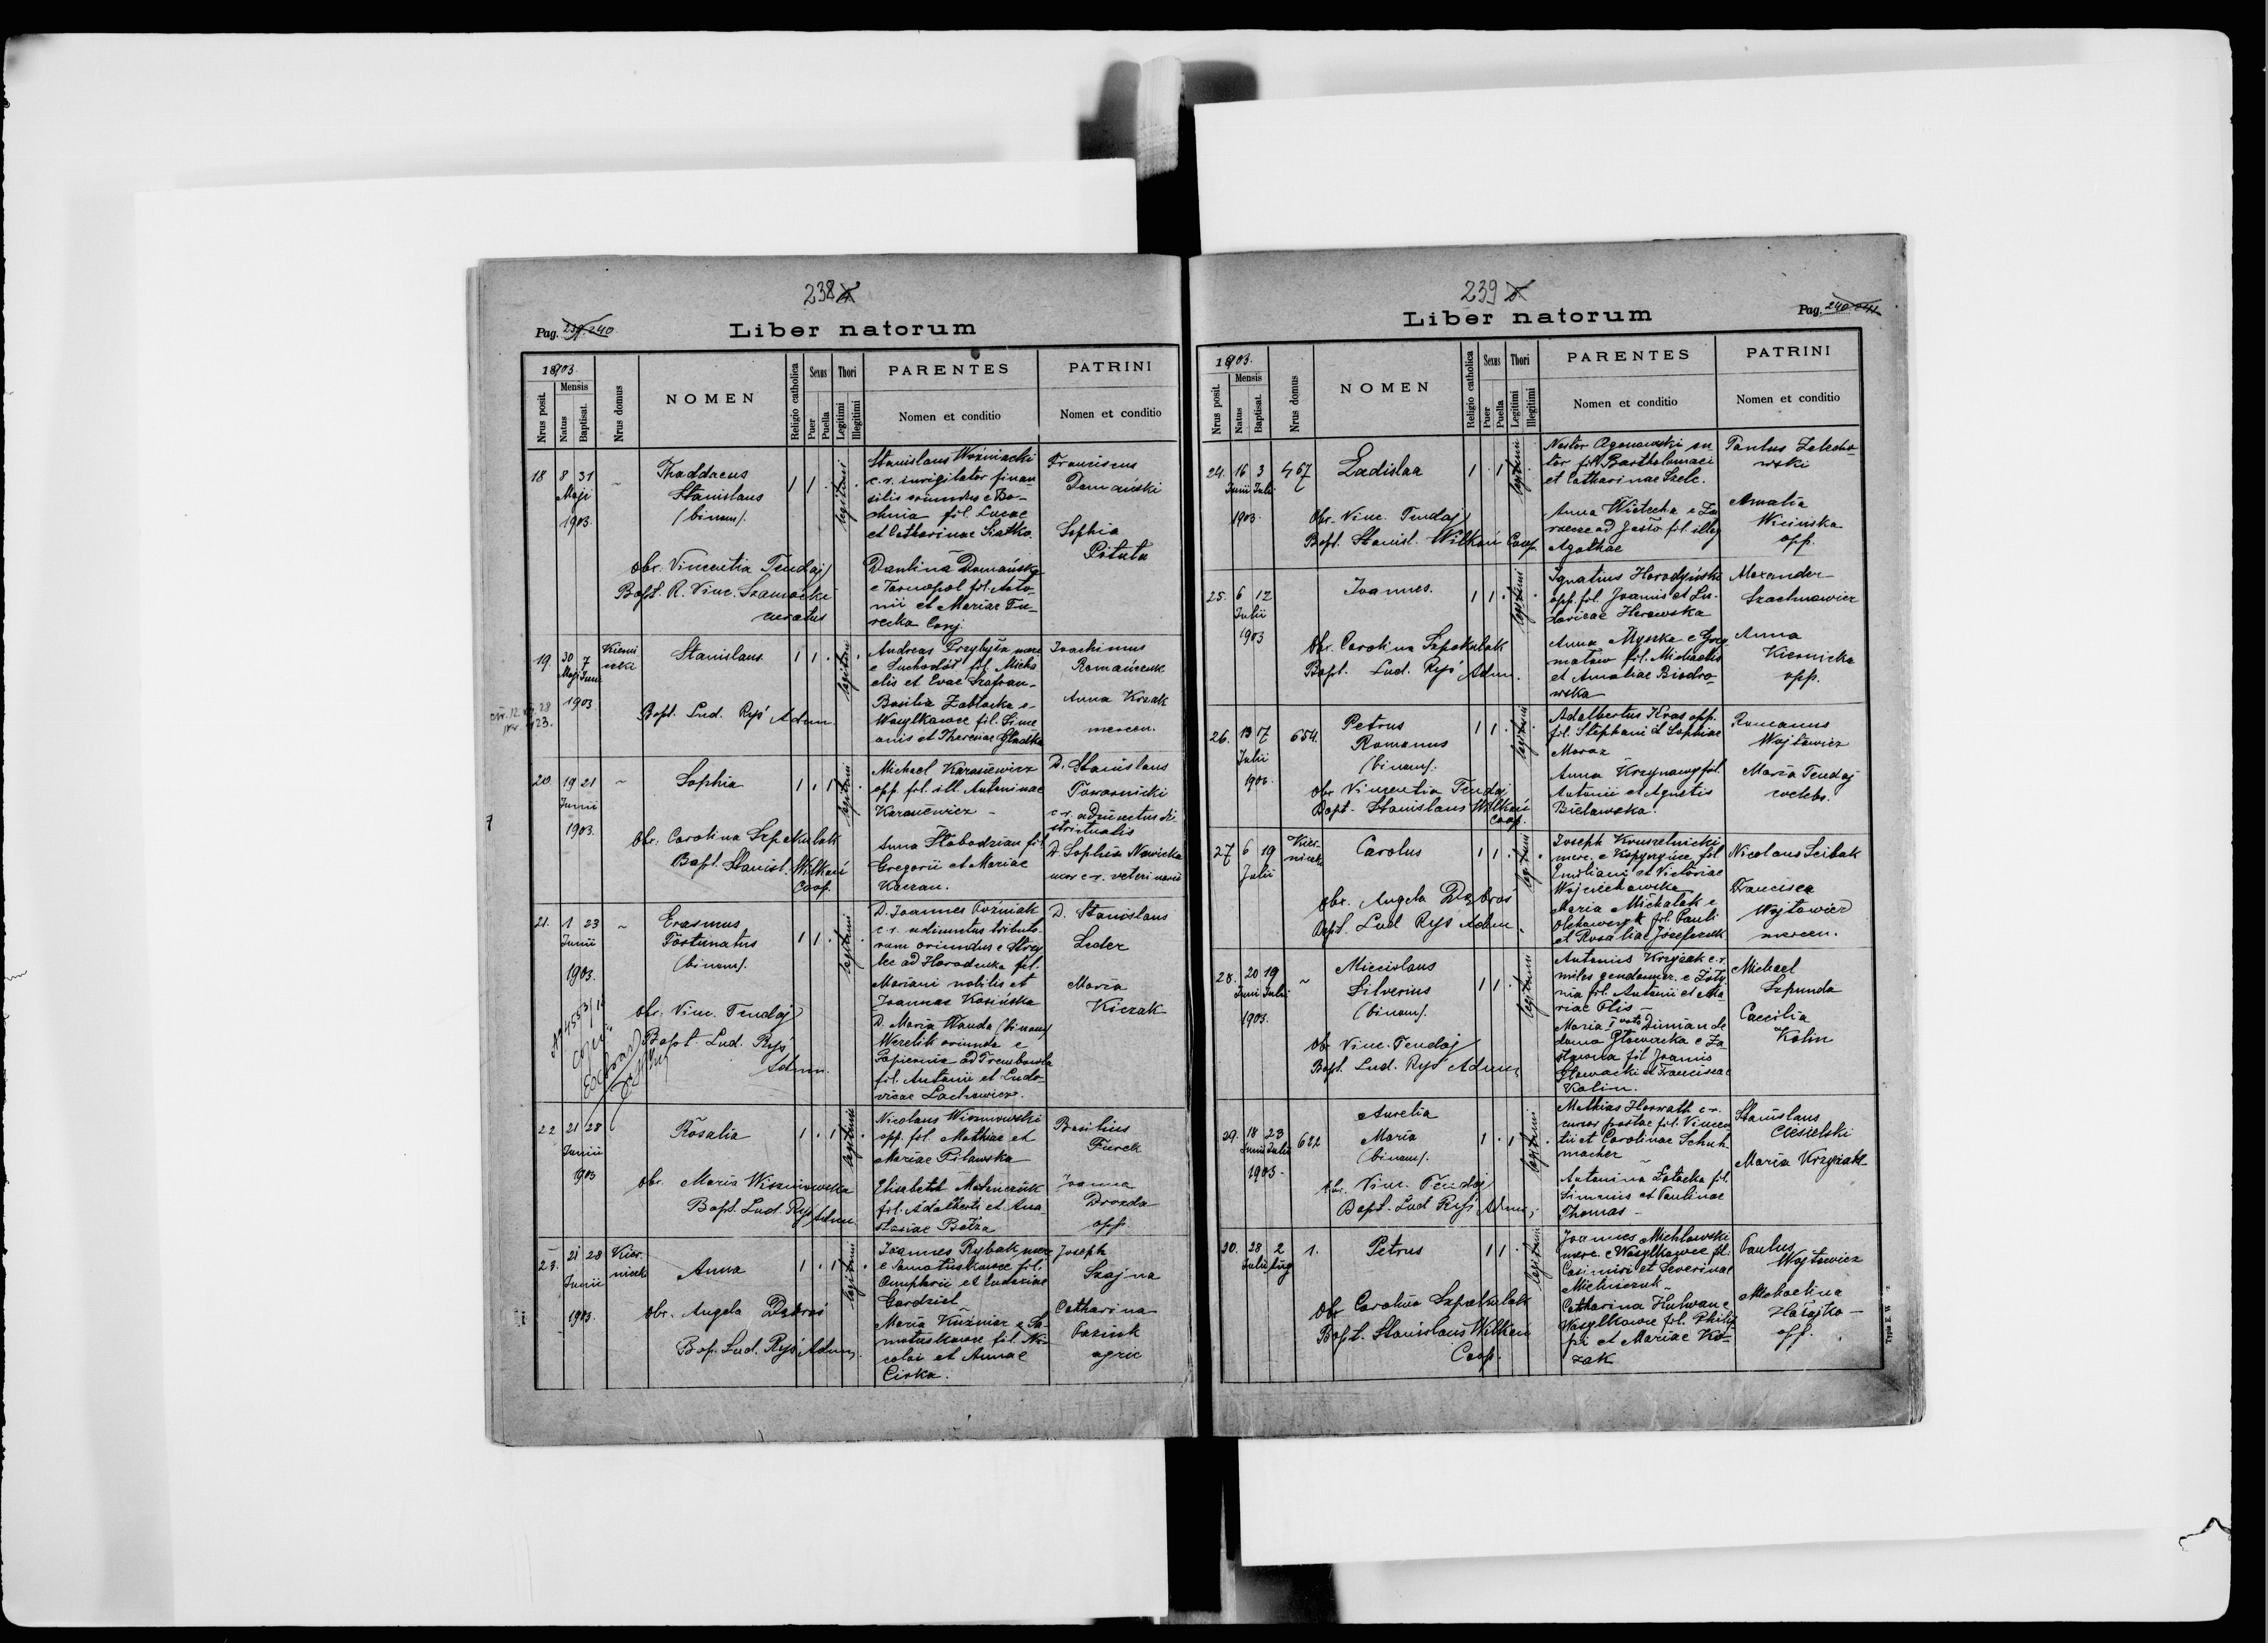 238
Pag. 239. 240
Liber natorum
1903.
Mensis
Nrus posit.
Natus
Baptisat.
Nrus domus
NOMEN
Religio catholica
Sexus
Puer
Puella
Thori
Legitimi
Illegitimi
PARENTES
Nomen et conditio
PATRINI
Nomen et conditio
18 8 31
Maji
1903.
Thaddaeus
Stanislaus
(binom).
1 1
legitimi
obr. Vincentia Tendaj
Bapt. R. Vinc. Szamocki
curatus
Stanislaus Woźniacki
c. r. invigilator finan
silis oriundus e Bo-
chnia fil. Lucae
et Catharinae Siatko
Paulina Domańska
e Tarnopol fil. Anto-
nii et Mariae Tu-
recka Conj.
Franciscus
Domański
Sophia
Pituta
19. 30 7
Maji Junii
1903
Stanislaus
1 1
legitimi
Bapt. Lud. Ryś Adm.
Andreas Przybyła merc
e Suchodół fil. Micha
elis et Evae Szafran-
Basilia Zabłocka e
Wasylkowce fil. Sime
onis et Theresiae Gładka
Joachimus
Romańczuk
Anna Krzak
mercen.
20. 19 21
Junii
1903.
Sophia
1 1
legitimi
obr. Carolina Szpakulak
Bapt. Stanisl. Wilkoń
Coop.
Michael Karasiewicz
opp. fil. ill. Antoninae
Karasiewicz -
Anna Słobodzian fil
Gregorii et Mariae
Kaczan.
D. Stanislaus
Tarasnicki
c. r. adiunctus di-
strictualis
D. Sophia Nawicka
uxor c. r. veterinarii
21. 1 23
Junii
1903.
Erasmus
Fortunatus
(binom).
1 1
legitimi
obr. Vinc. Tendaj
Bapt Lud. Ryś
Adm.
D. Joannes Woźniak
c. r. adiunctus tributo-
rum oriundus e Strzy
lce ad Horodenka fil.
Mariani nobilis et
Joannae Kosińska
D. Maria Wanda (binom)
Werelik oriunda e
ad Trembowla
fil. Antonii et Ludo-
vicae Lachowicz.
D. Stanislaus
Leder
Maria
Kiczak
22 21 28
Junii
1903
Rosalia
1 1
legitimi
obr. Maria Wiszniowska
Bapt. Lud. Ryś Adm
Nicolaus Wiszniowski
opp. fil. Mathiae et
Mariae Pilawska
Elisabeth Matwiczuk
fil. Adalberti et Ana
stasiae
Basilius
Furek
Joanna
Drozda
opp.
23. 21 28
Junii
1903.
Anna
1 1
legitimi
obr. Angela Dąbroś
Bap. Lud. Ryś Adm.
Joannes Rybak merc
e Samołuskowce fil.
Onuphrii et Eudoxiae
Gardziel
Maria Kuźniar e Sa-
mołuskowce fil. Ni-
colai et Annae
Cirka.
Joseph
Szajna
Catharina
Paziuk
agric
239
Pag. 240-241
Liber natorum
1903.
Mensis
Nrus posit.
Natus
Baptisat.
Nrus domus
NOMEN
Religio catholica
Sexus
Puer
Puella
Thori
Legitimi
Illegitimi
PARENTES
Nomen et conditio
PATRINI
Nomen et conditio
24. 16 3 467
Junii Julii
1903.
Ladislaa
1 1
legitimi
Obr. Vinc. Tendaj
Bapt. Stanisl. Wilkoń Coop.
Nestor Aganowski su-
tor fil. Bartholomaei
et Catharinae Szele.
Anna Wistecha e Za
rnecze ad Jasło fil. illeg
Agathae
Paulus Zelecho-
wski
Amalia
Wicińska
opp.
25. 6 12
Julii
1903
Joannes.
1 1
legitimi
Obr. Carolina Szpakulak
Bapt. Lud. Ryś Adm.
Ignatius Horodyński
opp. fil. Joannis et Lu-
dovicae Herowska
Anna Myszka e Grzy
małow fil. Michaelis
et Amaliae Biodro-
wska
Alexander
Szachnowicz
Anna
Kiernicka
opp.
26. 13 17 654.
Julii
1903.
Petrus
Romanus
(binom).
1 1
legitimi
obr Vincentia Tendaj
Bapt. Stanislaus Wilkoń
Coop.
Adalbertus Kras opp.
fil. Stephani et Sophiae
Moroz
Anna Krzynawy fil.
Antonii et Agnetis
Bielawska.
Romanus
Wojtowicz
Maria Tendaj
coelebs.
27 6 19
Julii
Carolus
1 1
legitimi
obr. Angela Dąbroś
Bapt. Lud Ryś Adm.
Joseph Kruszelnicki
merc. e Kopyczyńce fil
Emiliani et Victoriae
Wojciechowska
Maria Michalak e
fil. Pauli
et Rosaliae Józefczuk
Nicolaus Scibak
Francisca
Wojtowicz
mercen.
28. 20 19
Juni Julii
1903.
Miecislaus
Silverius
(binom).
1 1
legitimi
obr Vinc. Tendaj
Bapt. Lud. Ryś Adm.
Antonius Krzyżak c. r.
miles gendarmer. e Żoły
nia fil. Antonii et Ma
riae Plis
Maria Iº voto Dunian de
domo Głowacka e Za
stawna fil Joannis
Głowacki et Franciscae
Kalin.
Michael
Szpunda
Caecilia
Kolin
29. 18 23 622
Junii Julii
1903.
Aurelia
Maria
(binom).
1 1
legitimi
obr. Vinc. Tendaj
Bapt. Lud Ryś Adm.
Mathias Horwath c. r.
cursor postae fil. Vincen
tii et Carolinae Schuh
macher
Antonina Łotocka fil.
Simonis et Paulinae
Thomas -
Stanislaus
Ciesielski
Maria Krzyżak
30. 28 2 1.
Julii Aug
Petrus
1 1
legitimi
Obr Carolina Szpakulak
Bapt. Stanislaus Wilkoń
Coop.
Joannes Michłowski
merc. e Wasylkowce fil.
Casimiri et Severinae
Mielniczuk -
Catharina Hulwan e
Wasylkowce fil. Philip
pi et Mariae Ko-
zak
Paulus
Wojtowicz
Michaelina
Hałajko -
opp.
Typis E. W